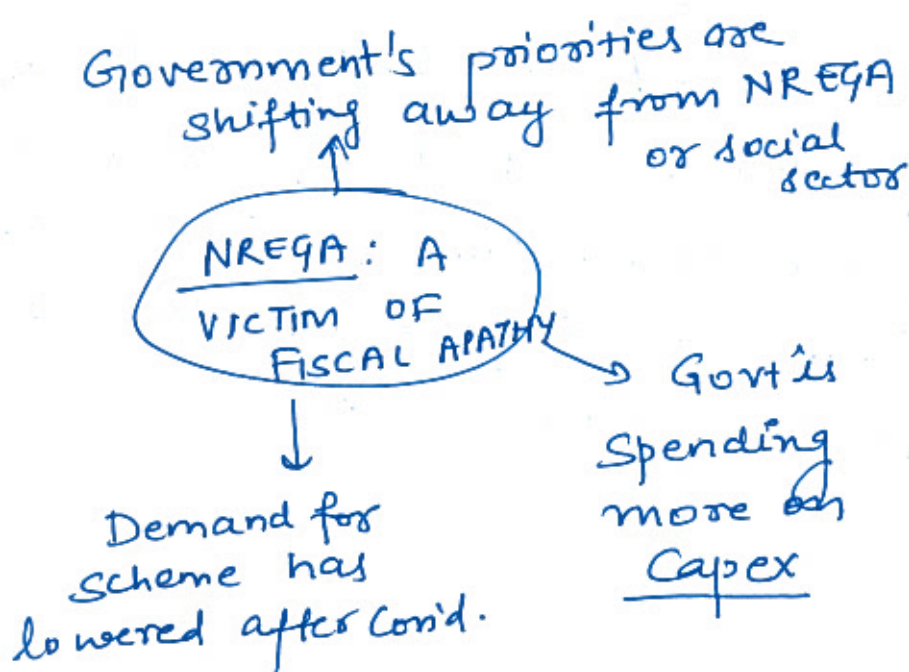 Government's priorities are
shifting away from NREGA
or social
sector
NREGA: A
VICTIM OF
FISCAL APATHY
Govt is
Spending
more on
Capex
Demand for
scheme has
lowered after Covid.